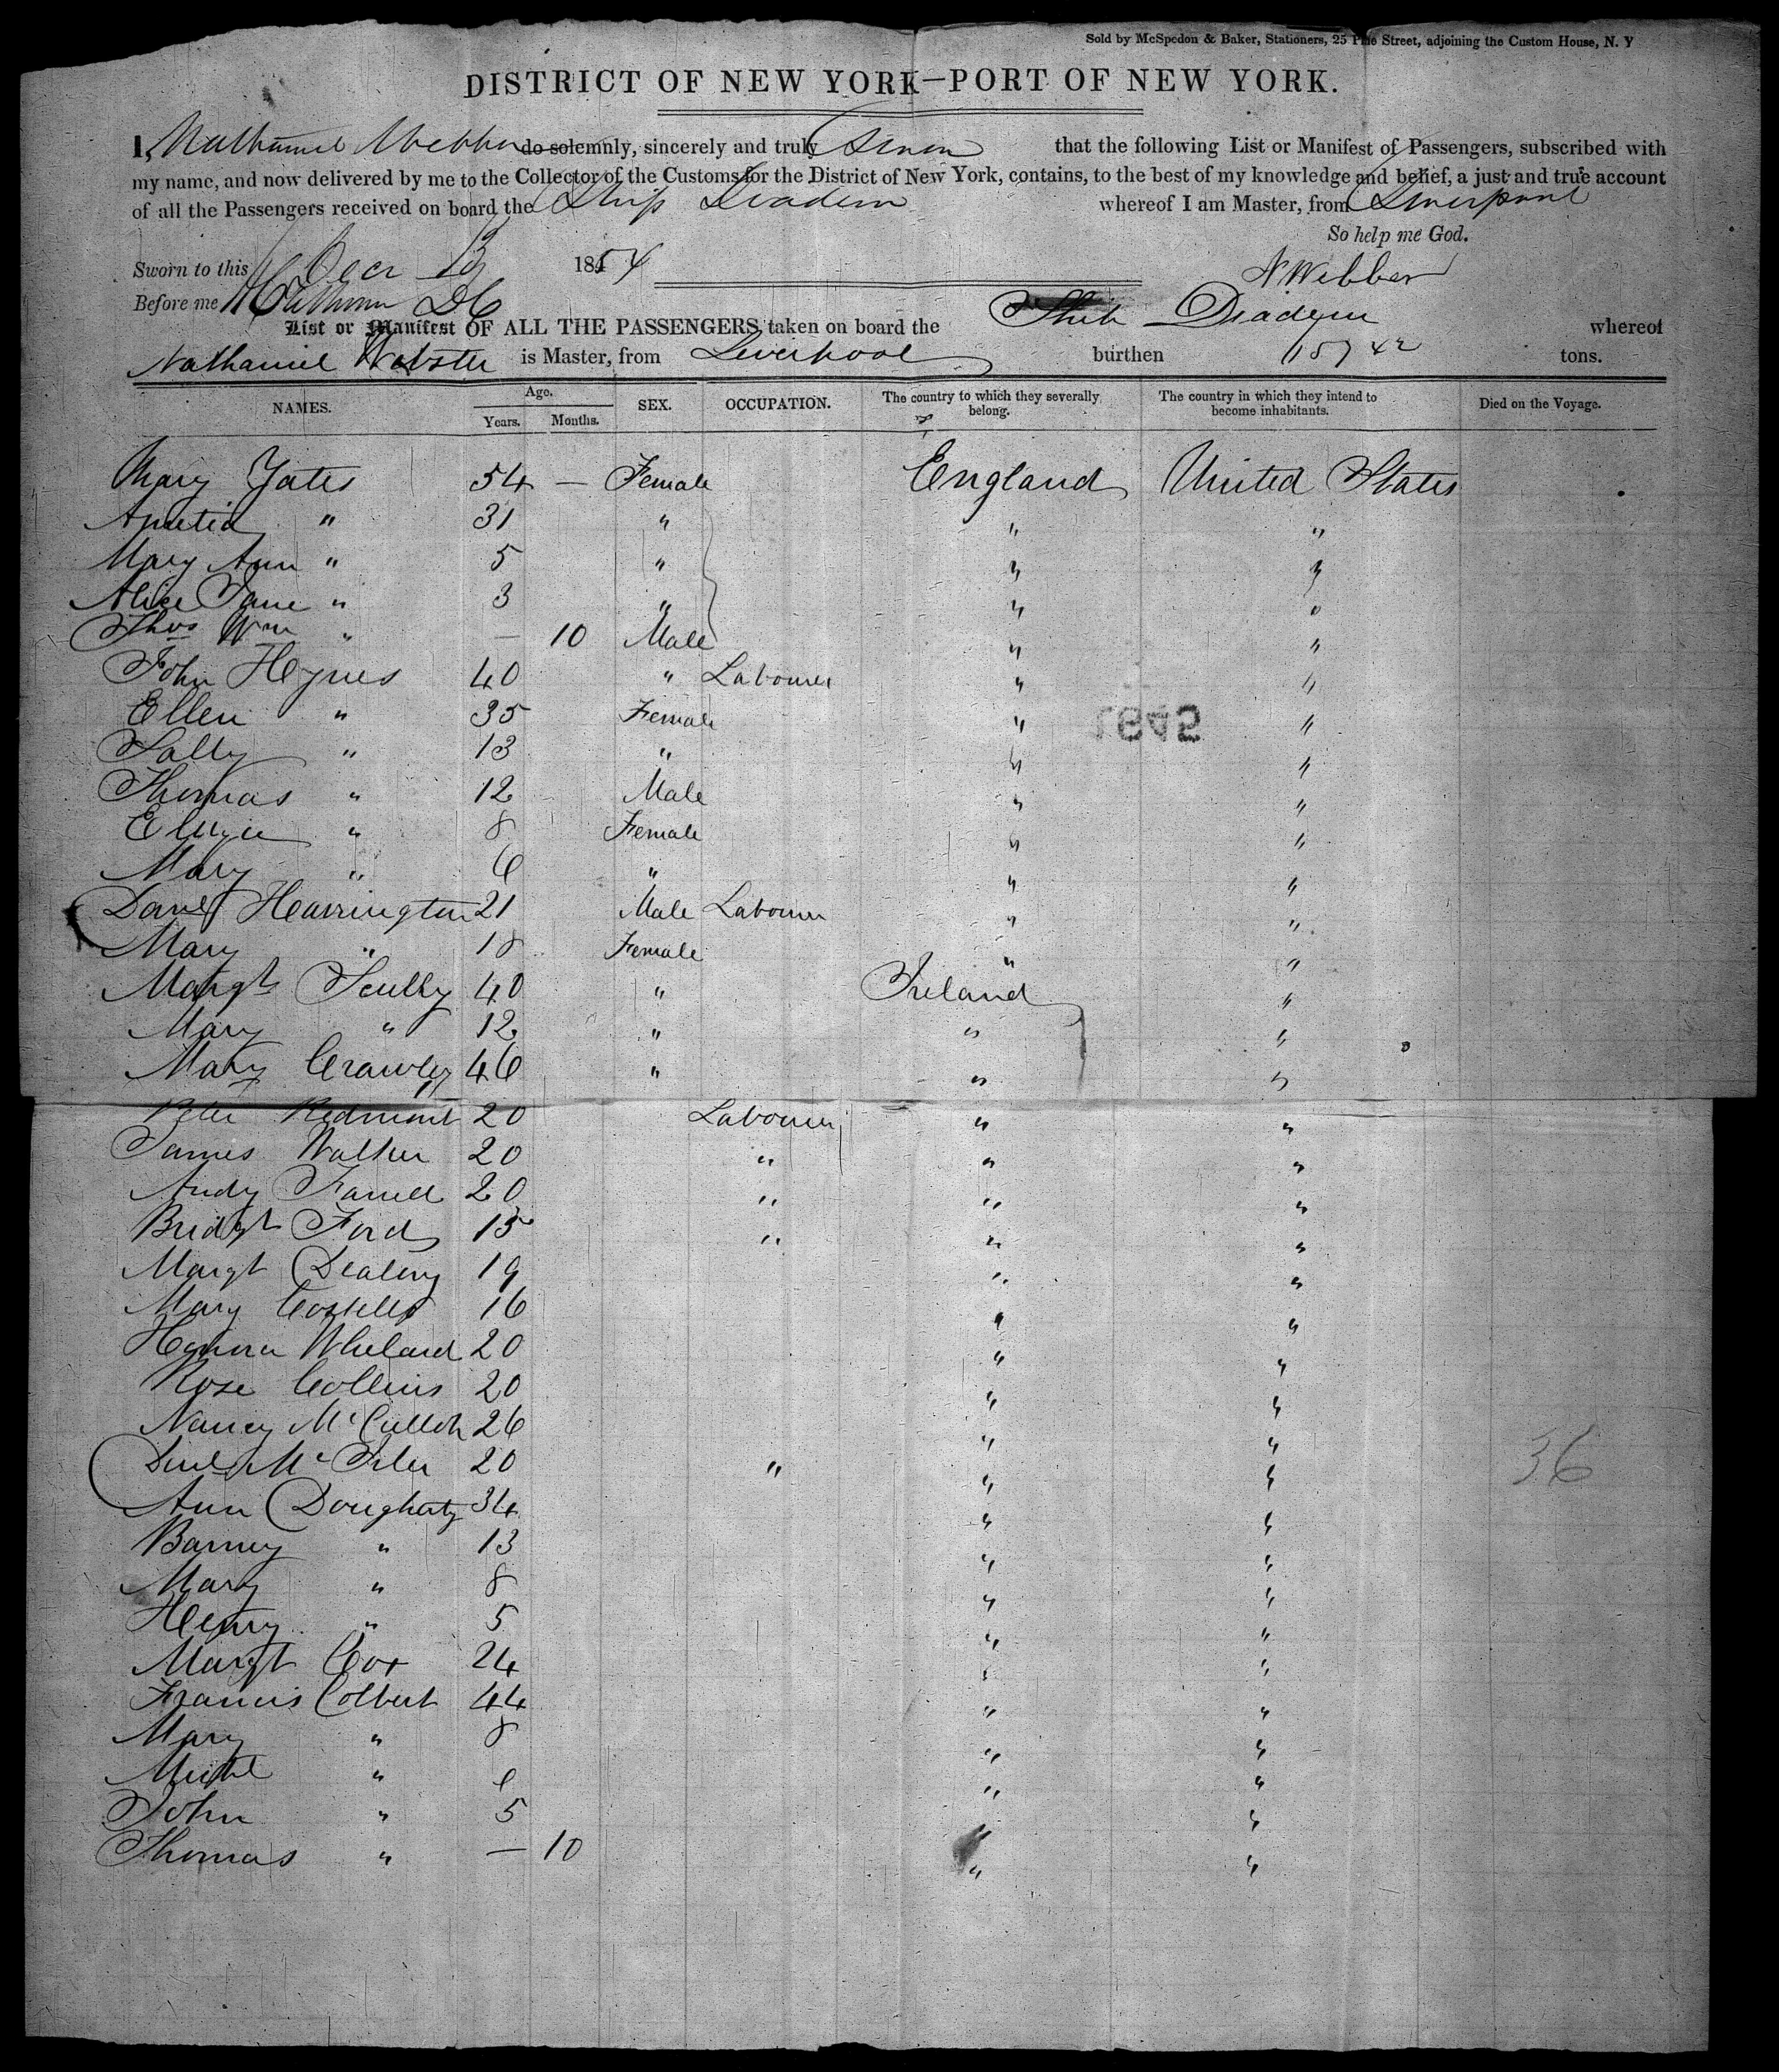 Sold by McSpedon & Baker, Stationers, 25 Pine Street, adjoining the Custom House, N. Y
DISTRICT OF NEW YORK—PORT OF NEW YORK.
I, Nathaniel Webber do solemnly, sincerely and truly Swear that the following List or Manifest of Passengers, subscribed with
my name, and now delivered by me to the Collector of the Customs for the District of New York, contains, to the best of my knowledge and belief, a just and true account
of all the Passengers received on board the Ship Diadem whereof I am Master, from Liverpool
So help me God.
Sworn to this Decr 13 1854 N Webber
Before me
List or Manifest OF ALL THE PASSENGERS taken on board the Ship Diadem whereof
Nathaniel Webster is Master, from Liverpool burthen 1574 tons.
NAMES. Age. Years. Months. SEX. OCCUPATION. The country to which they severally belong. The country in which they intend to become inhabitants. Died on the Voyage.
Mary Yates 54 — Female England United States
" 31 " " "
Mary Ann " 5 " " "
Alice Jane " 3 " " "
Thos Wm " — 10 Male " "
John Heynes 40 " Labourer " "
Ellen " 35 Female " "
Sally " 13 " " "
Thomas " 12 Male " "
" 8 Female " "
Mary " 6 " " "
Danl Harrington 21 Male Labourer " "
Mary " 18 Female " "
Margt Scully 40 " Ireland "
Mary " 12 " " "
Mary Crawley 46 " " "
Peter Redmont 20 Labourer " "
James Walker 20 " " "
Andy Farrell 20 " " "
Bridgt Ford 15 " " "
Margt 19 " "
Mary Costello 16 " "
Honora Wheland 20 " "
Rose Collins 20 " "
Nancy McCulloh 26 " "
20 " " "
Ann Dougherty 34 " "
Barney " 13 " "
Mary " 8 " "
Henry " 5 " "
Margt Cox 24 " "
Francis Colbert 44 " "
Mary " 8 " "
Michl " " "
John " 5 " "
Thomas " — 10 " "
36